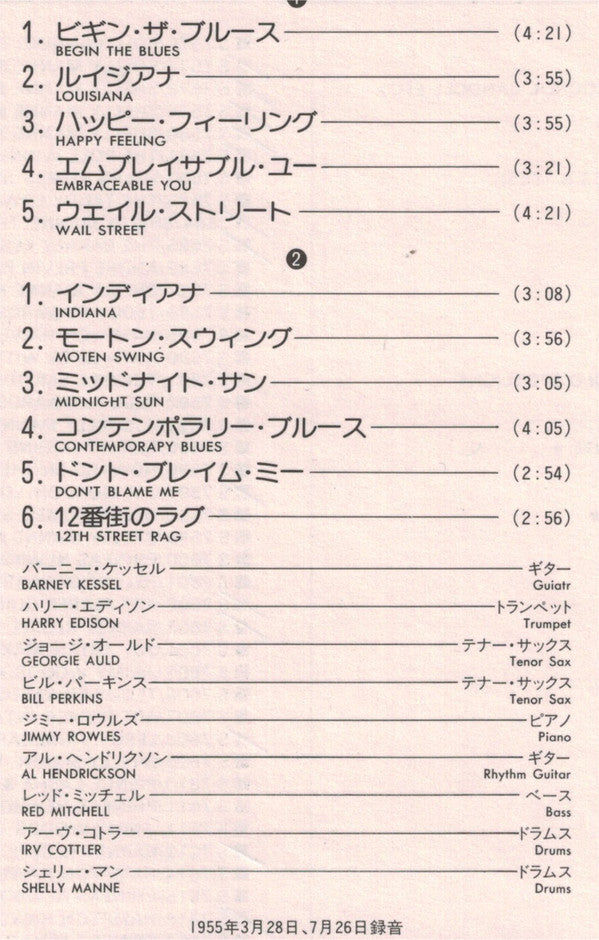 1. ビギン・ザ・ブルース (4:21)
BEGIN THE BLUES
2. ルイジアナ (3:55)
LOUISIANA
3. ハッピー・フィーリング (3:55)
HAPPY FEELING
4. エムブレイサブル・ユー (3:21)
EMBRACEABLE YOU
5. ウェイル・ストリート (4:21)
WAIL STREET
❷
1. インディアナ (3:08)
INDIANA
2. モートン・スウィング (3:56)
MOTEN SWING
3. ミッドナイト・サン (3:05)
MIDNIGHT SUN
4. コンテンポラリー・ブルース (4:05)
CONTEMPORAPY BLUES
5. ドント・ブレイム・ミー (2:54)
DON'T BLAME ME
6. 12番街のラグ (2:56)
12TH STREET RAG
バーニー・ケッセル ギター
BARNEY KESSEL Guiatr
ハリー・エディソン トランペット
HARRY EDISON Trumpet
ジョージ・オールド テナー・サックス
GEORGIE AULD Tenor Sax
ビル・パーキンス テナー・サックス
BILL PERKINS Tenor Sax
ジミー・ロウルズ ピアノ
JIMMY ROWLES Piano
アル・ヘンドリクソン ギター
AL HENDRICKSON Rhythm Guitar
レッド・ミッチェル ベース
RED MITCHELL Bass
アーヴ・コトラー ドラムス
IRV COTTLER Drums
シェリー・マン ドラムス
SHELLY MANNE Drums
1955年3月28日、7月26日録音